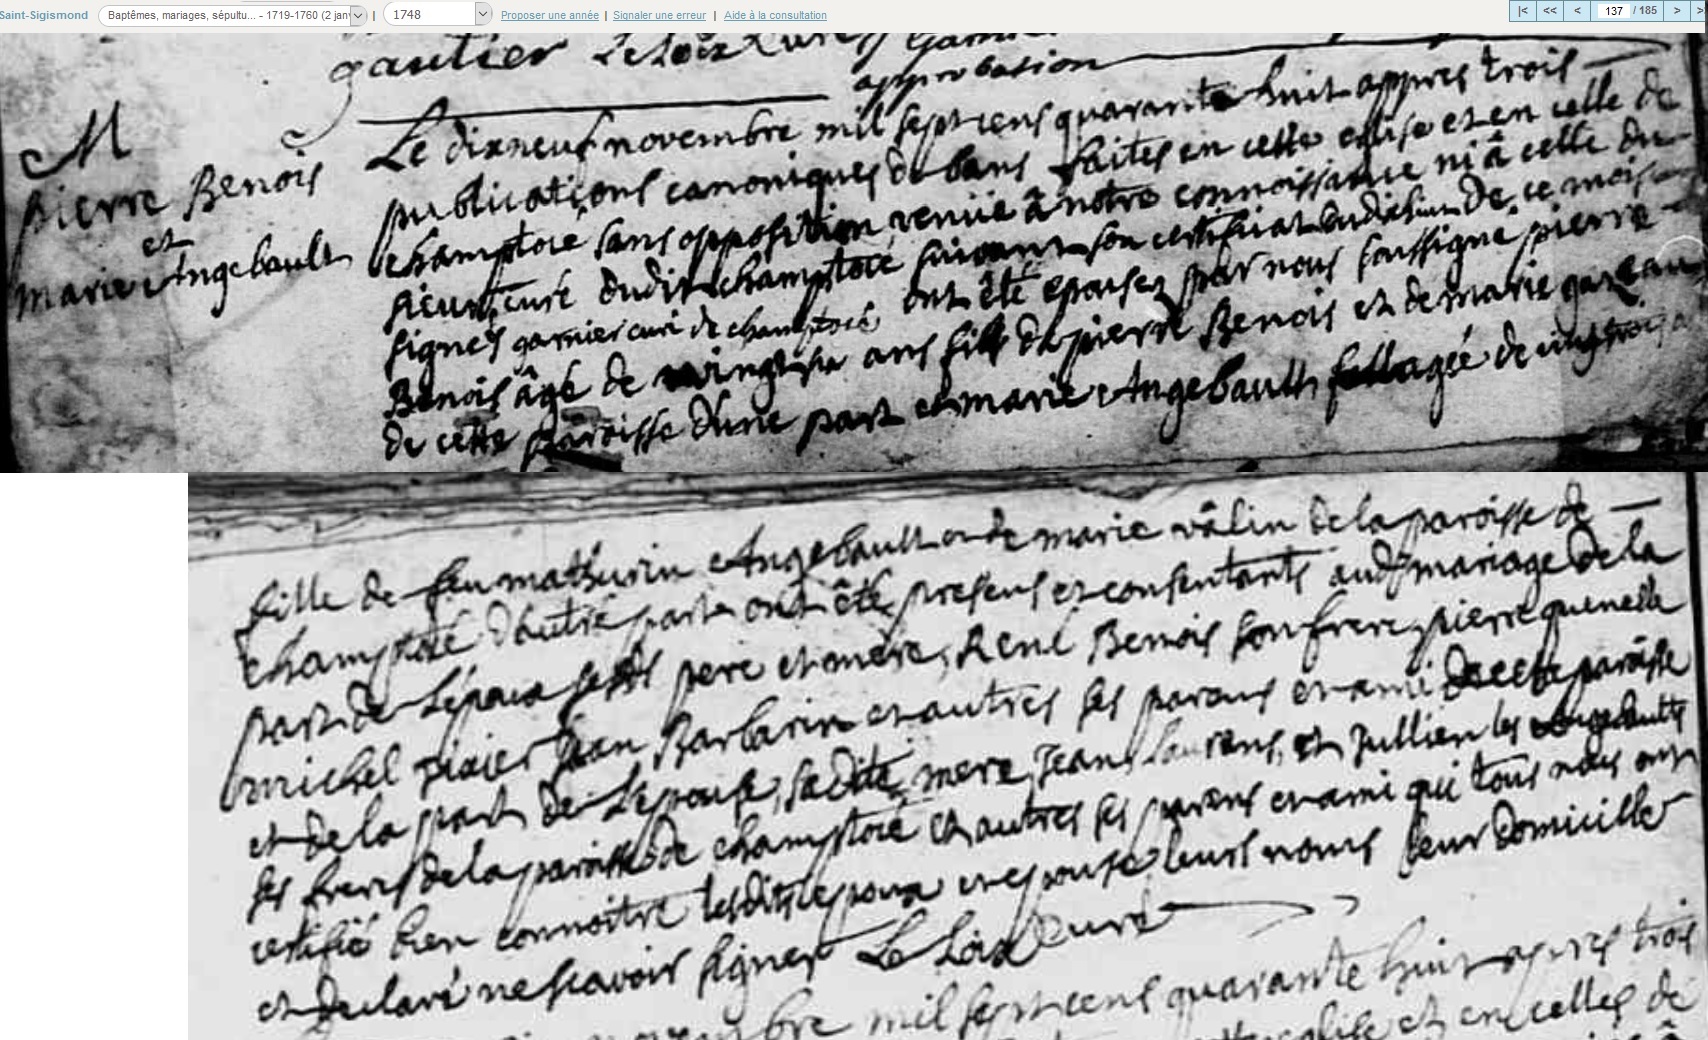 Saint-Sigismond
Baptêmes, mariages, sépultu... - 1719-1760 (2 janv
| 1748
Proposer une année | Signaler une erreur | Aide à la consultation
|< << < 137 / 185 > >
gautier LeLoix Curé
approbation
M
pierre Benois
et
marie Angebault
Le dixneuf novembre mil sept cens quarante huit appres trois
publications canoniques de bans faites en cette eglise et en celle de
champtocé sans opposition venüe à notre connoissance ni à celle du
sieur curé dudit champtocé suivant son certifiat du de ce mois
signés garnier curé de champtocé ont été epousez par nous soussigné pierre
Benois âgé de vingt six ans fils de pierre Benois et de marie gazeau
de cette paroisse d'une part et marie Angebault agée de vingt trois
fille de feu mathurin Angebault et de marie vâlin de la paroisse de
champtocé d'autre part ont été presens et consentants audt mariage de la
part de L'epoux sesdts pere et mere, René Benois son frere, pierre quenelle
michel jean Barbarin et autres ses parens et ami de cette paroisse
et de la part de L'epouse, sadite mere, Jean, Laurens, et Jullien les Angebaults
ses freres de la paroisse de champtocé et autres ses parens et ami qui tous nous ont
certifié bien connoitre lesdits epoux et epouse leurs noms leur domicille
et declaré ne scavoir signer LeLoix Curé
novembre mil sept cens quarante huit appres trois
eglise et en celles de